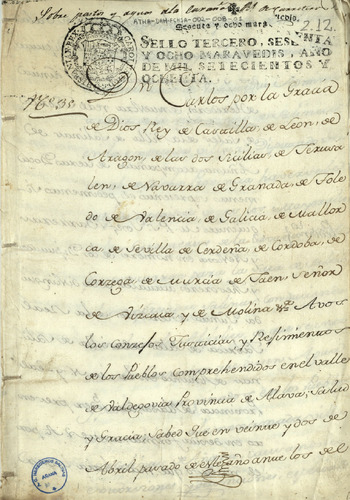 Sobre pastos y aguas
ATHA-DAH-FCHIA-001-006-03
Sesenta y ocho mars.
212.
SELLO TERCERO, SESENTA
Y OCHO MARAVEDIS, AÑO
DE MIL SETECIENTOS Y
OCHENTA.
Carlos por la Gracia
de Dios Rey de Castilla, de Leon, de
Aragon, de las dos Sicilias, de Jerusa
len, de Navarra de Granada, de Tole
do de Valencia, de Galicia, de Mallor
ca, de Sevilla de Cerdeña, de Cordoba, de
Corzega, de Murcia de Jaen, Señor
de Vizcaia, y de Molina &a. A vos
los Conzejos, Justicias, y Rejimientos
de los Pueblos comprehendidos en el valle
de Valdegovia Provincia de Alava; Salud
y Gracia; Sabed Que en veinte y dos de
Abril pasado de este año ante los de el